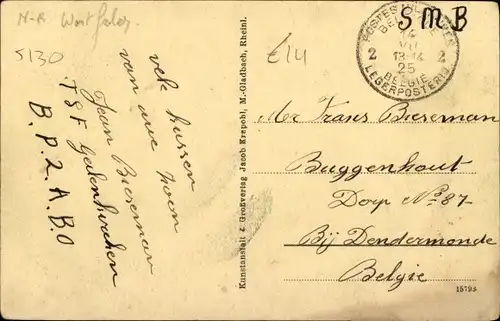 N-R Westfalen
5130
S M B
POSTES MILITAIRES
BELGIQUE
2 14 VII 13-14 25 2
BELGIE
LEGERPOSTERIJ
£14
vele kussen
van uwe zoon
Jean Bieseman
T S F Geilenkirchen
B. P. 2. A. B. O
Kunstanstalt & Großverlag Jacob Krapohl, M.-Gladbach, Rheinl.
Mr Frans Bieseman
Buggenhout
Dorp No 87
Bij Dendermonde
Belgie
15793